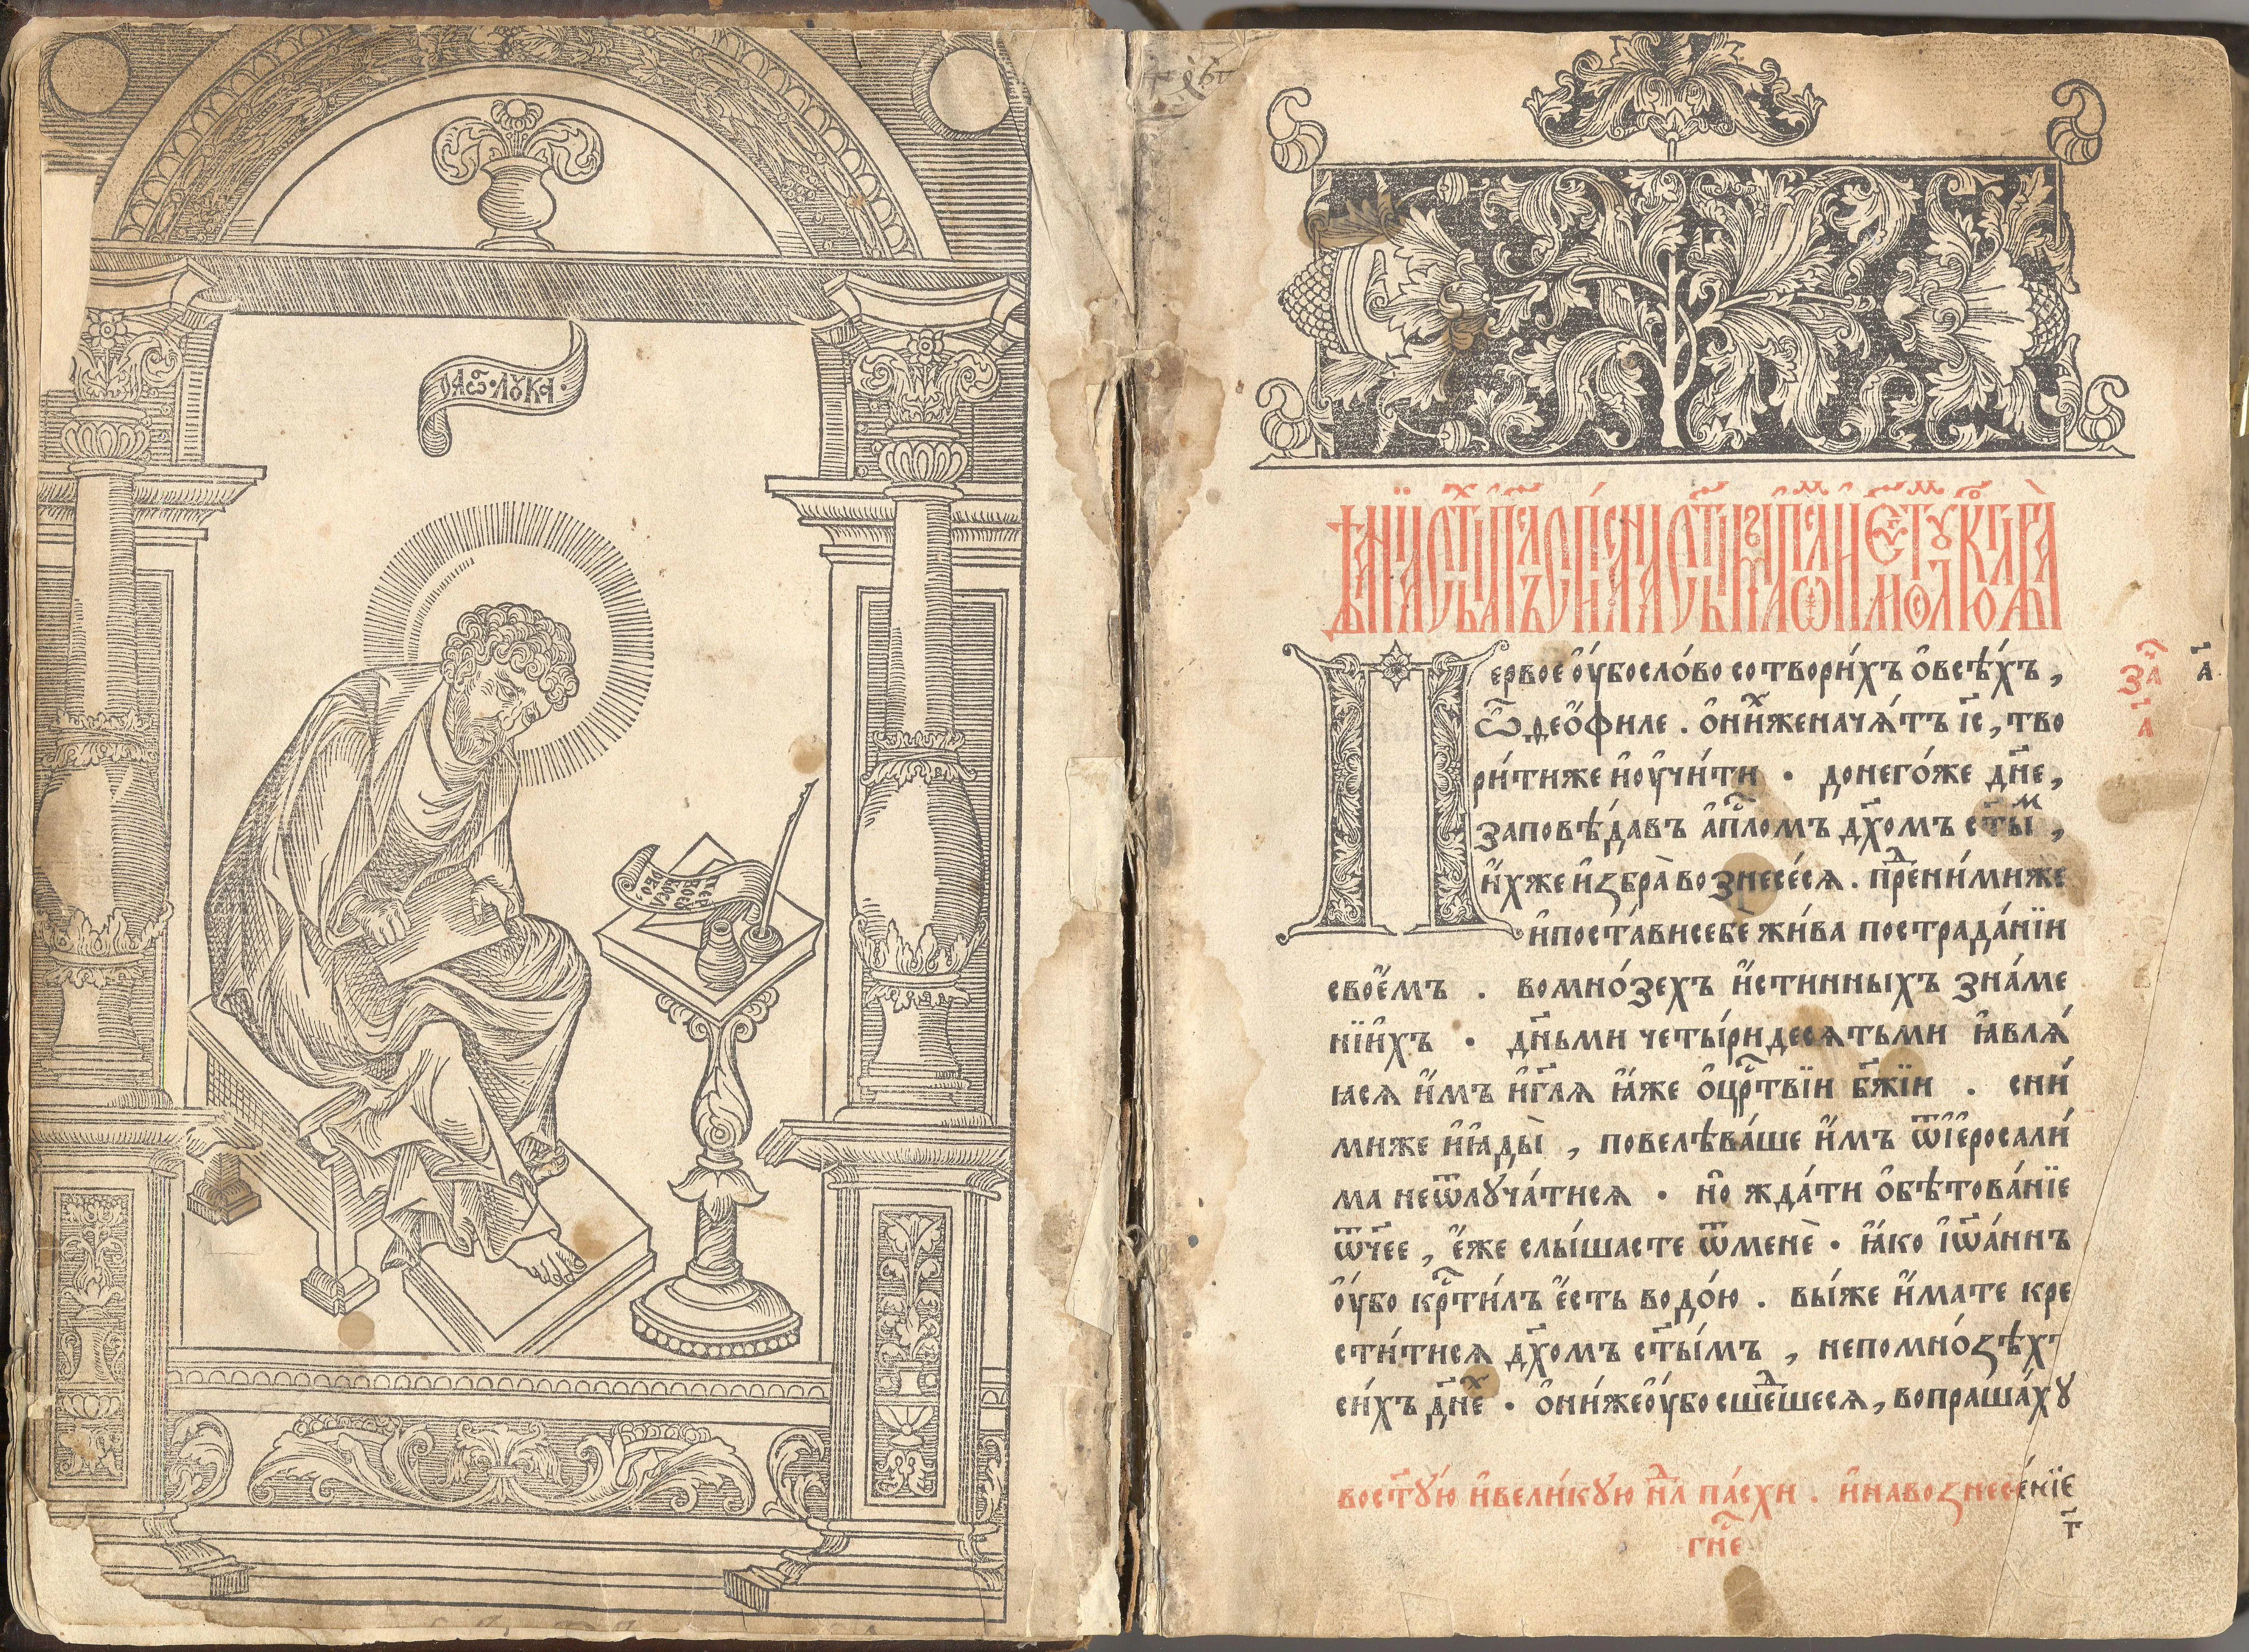 ЛУКА
Пе́рвое ᲂу҆́бо сло́во сотвори́хъ ѻ҆ всѣ́хъ,
ѽ деѻ҆́филе . ѻ҆ ни́хже начѧ́тъ і҆с҃, тво
ри́ти же и҆ ᲂу҆чи́ти . до него́же дн҃е,
заповѣ́давъ а҆пⷭ҇ломъ дх҃омъ ст҃ы́ⷨ,
и҆́хже и҆збра̀ вознесе́сѧ . преⷣ ни́миже
и҆ поста́ви себе жи́ва по страда́нїи
свое҆́мъ . во мно́зехъ и҆́стинныхъ зна́ме
нїи҆хъ . дн҃ьми четы́ридесѧтьми ꙗ҆влѧ́
ꙗсѧ и҆̀мъ и҆ гл҃ѧ ꙗ҆́же ѻ҆ црⷭ҇твїи бж҃їи . с ни́
миже и҆ ꙗ҆ды̀ , повелѣва́ше и҆̀мъ ѿ і҆е҆росали́
ма не ѿлꙋча́тисѧ . но̀ жда́ти ѻ҆бѣтова́нїе
ѿч҃ее , е҆́же слы́шасте ѿ менѐ . ꙗ҆́ко і҆ѡ҆а́ннъ
ᲂу҆́бо крⷭ҇ти́лъ е҆́сть водо́ю . вы́ же и҆́мате кре
сти́тисѧ дх҃омъ ст҃ы́мъ , не по мно́ѕѣхъ
си́хъ дн҃еⷯ . ѻ҆ни́же ᲂу҆́бо сшеⷣшесѧ, вопраша́хꙋ
за҃ а҃
а҃
во ст҃ꙋ́ю и҆ вели́кꙋю нⷣлѧ па́схи . и҆ на воѕнесе́нїе
гн҃е
г҃